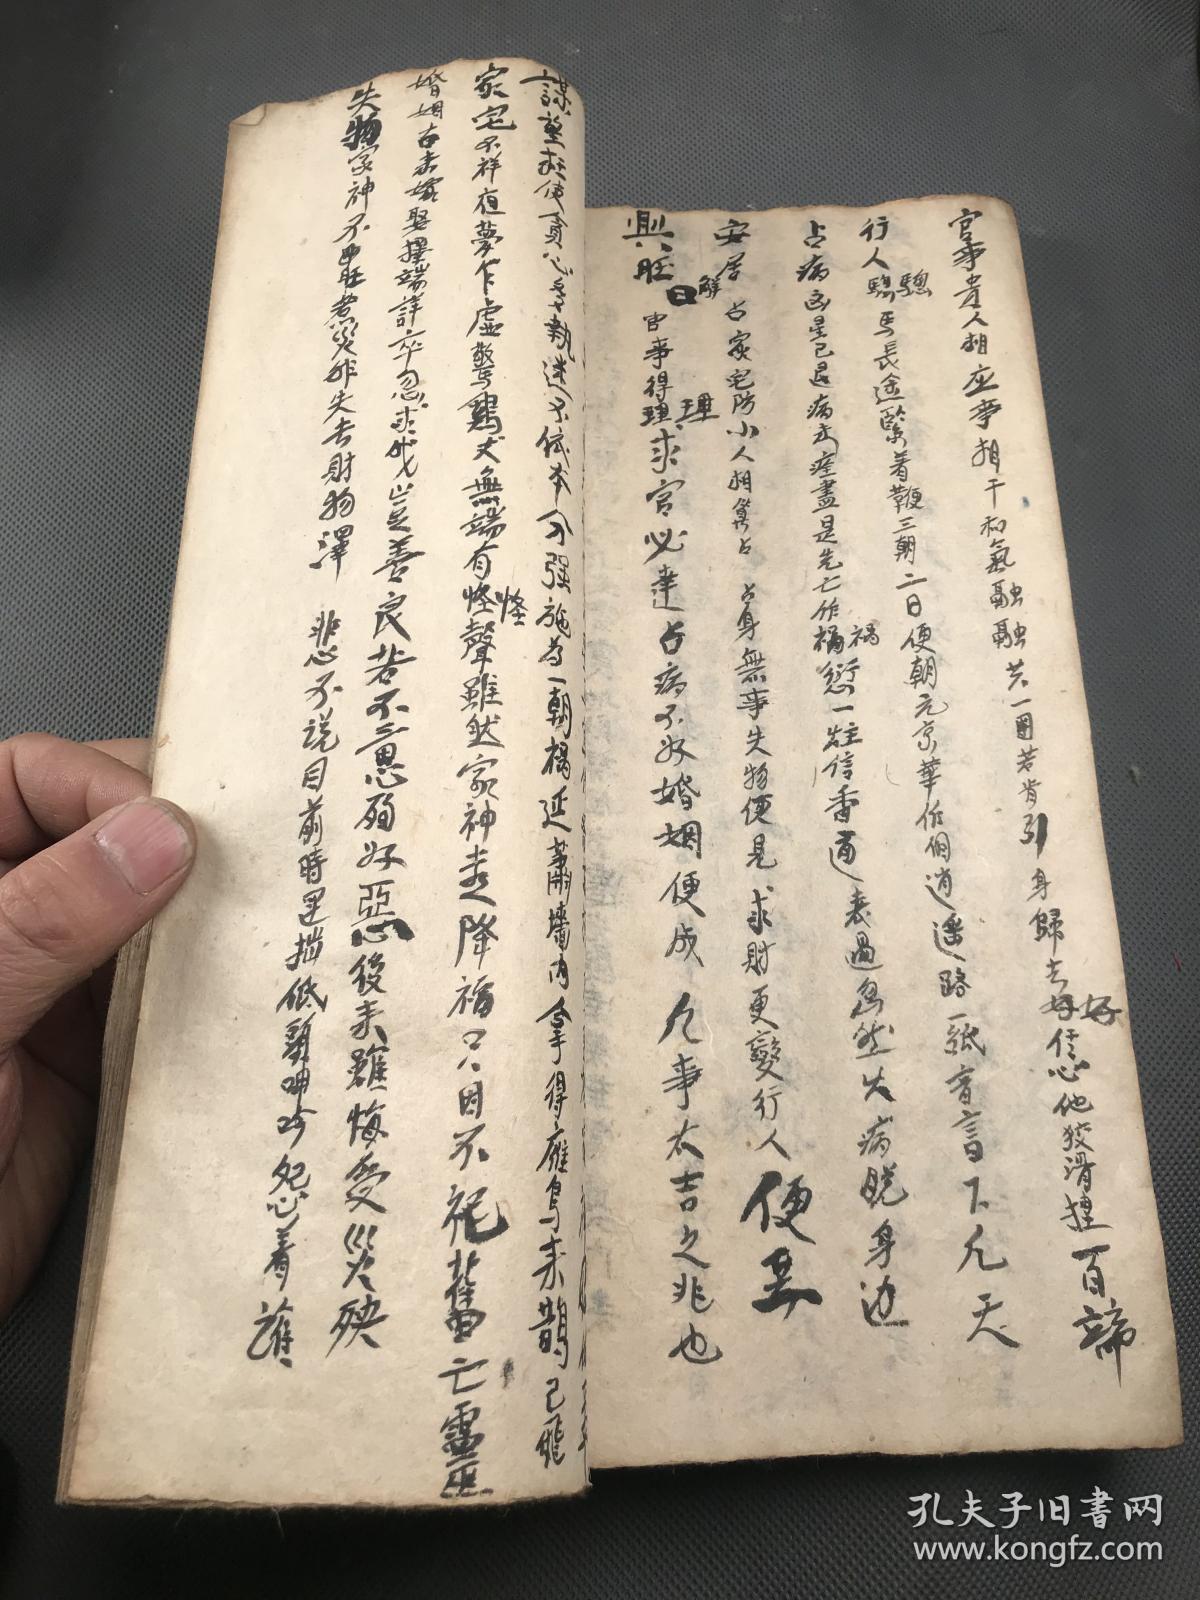 官事貴人相应事相干和氣融融共一團若肯引身歸去好好信心他狡滑撞百諦
行人騘騘馬長途緊着鞭三朝二日便朝元京華作個逍遥路一紙音言下九天
占病凶星已退病未痊盡是先亡作禍禍愆一炷信香通表過忽然灾病脱身边
安居占家宅防小人相算占占身無事失物便見求財更變行人便至
興旺解曰官事得理理求官必達占病不好婚姻便成凡事太吉之兆也
謀望枉使貪心執迷不依本分强施為一朝禍延蕭墻内拿得雁鳥来鵲已飛
家宅不祥夜夢乍虚驚鷄犬無端有怪怪聲雖然家神走降福只因不祀舊亡靈巫
婚姻古来嫁娶擇端詳卒忽求代豈善良若不三思窮好惡後来難悔受災殃
失物家神不中旺惹災非失去財物澤悲心不説目前時運拙低頭呻吟怨心着
孔夫子旧書网
www.kongfz.com